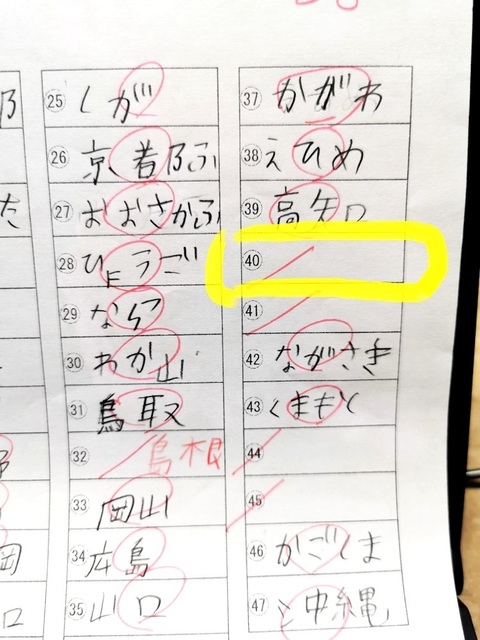 ㉕ しが
㉖ 京者乃ふ
㉗ おおさかふ
㉘ ひょうご
㉙ なら
㉚ わか山
㉛ 鳥取
㉜ 島根
㉝ 岡山
㉞ 広島
㉟ 山口
㊲ かがわ
㊳ えひめ
㊴ 高知
㊵
㊶
㊷ ながさき
㊸ くまもと
㊹
㊺
㊻ かごしま
㊼ 沖縄